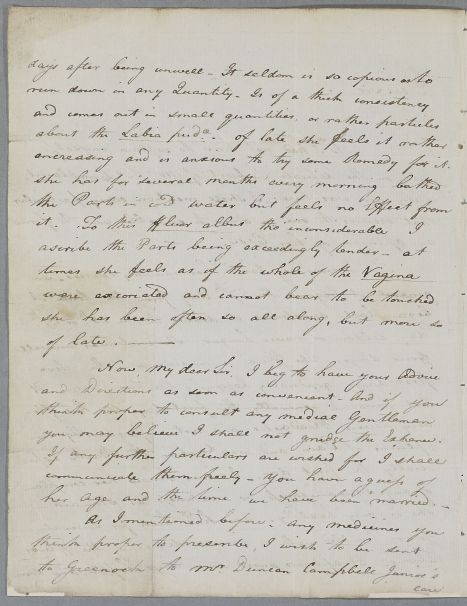 days after being unwell - It seldom is so copious as to
run down in any Quantity. Is of a thick consistency
and comes out in small quantities, or rather particles
about the Labia puda. - of late she feels it rather
encreasing and is anxious to try some Remedy for it.
she has for several months every morning bathed
the Parts in cD water but feels no Effect from
it. To this fluor albus tho inconsiderable I
ascribe the Parts being exceedingly tender - at
times she feels as if the whole of the Vagina
were excoriated and cannot bear to be touched
she has been often so all along, but more so
of late. -
Now, my dear Sir, I beg to have your Advice
and Directions as soon as convenient - And if you
think proper to consult any medical Gentleman
you may believe I shall not grudge the Expence.
If any further particulars are wished for I shall
communicate them freely - You have a guess of
her age and the time we have been married. -
As I mentioned before; any medicines you
think proper to prescribe, I wish to be sent
to Greenock to Mr Duncan Campbell Junior's
care